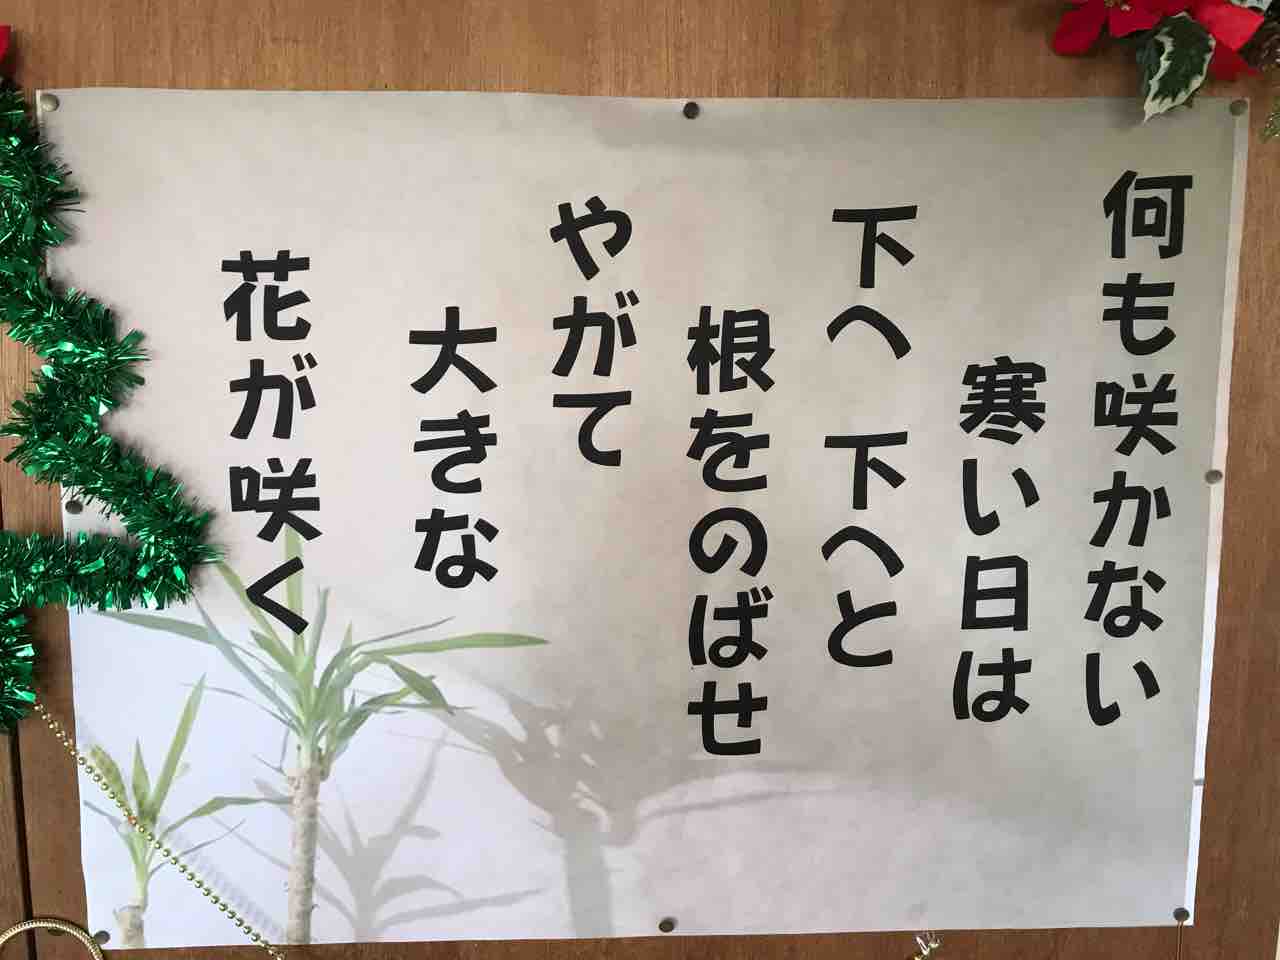 何も咲かない
寒い日は
下へ 下へと
根をのばせ
やがて
大きな
花が咲く